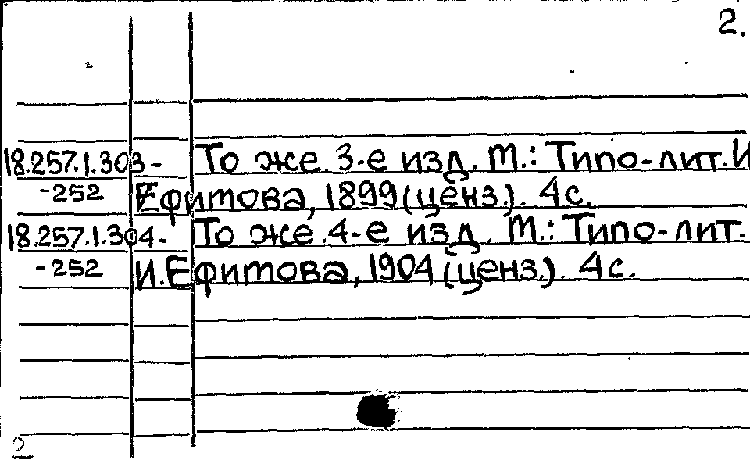 2.
18.257.1.303- То же. 3-е изд. М.: Типо-лит. И
-252 Ефимова, 1899 (ценз.). 4с.
18.257.1.304- То же. 4-е изд. М.: Типо-лит.
-252 И. Ефимова, 1904 (ценз.). 4с.